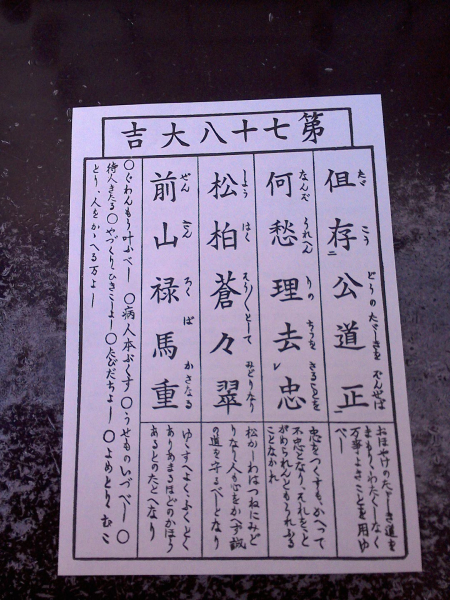 第七十八大吉
たゞ こう どうの たゞしきを ぞんせば
但存公道正
おほやけのたゞしき道を
まもり、わたくしなく
万事よきことを用ゆ
べし
なんぞ うれへん りの ちうを さることを
何愁理去忠
忠をつくすも、かへつて
不忠となり、それをと
がめられんともうれふる
ことなかれ
しよう はく そう〳〵として みどりなり
松柏蒼々翠
松かしわはつねにみど
りなり人も心をかへず誠
の道を守るべしとなり
ぜん さん ろく ば かさなる
前山禄馬重
ゆくすへよく、ふくとく
ありあまるほどのかほう
あるとのたとへなり
○ぐわんもう叶ふべし ○病人本ぷくす ○うせものいづべし ○
待人きたる ○やづくりひきこしよし ○たびだちよし ○よめとりむこ
とり、人をかゝへる万よし